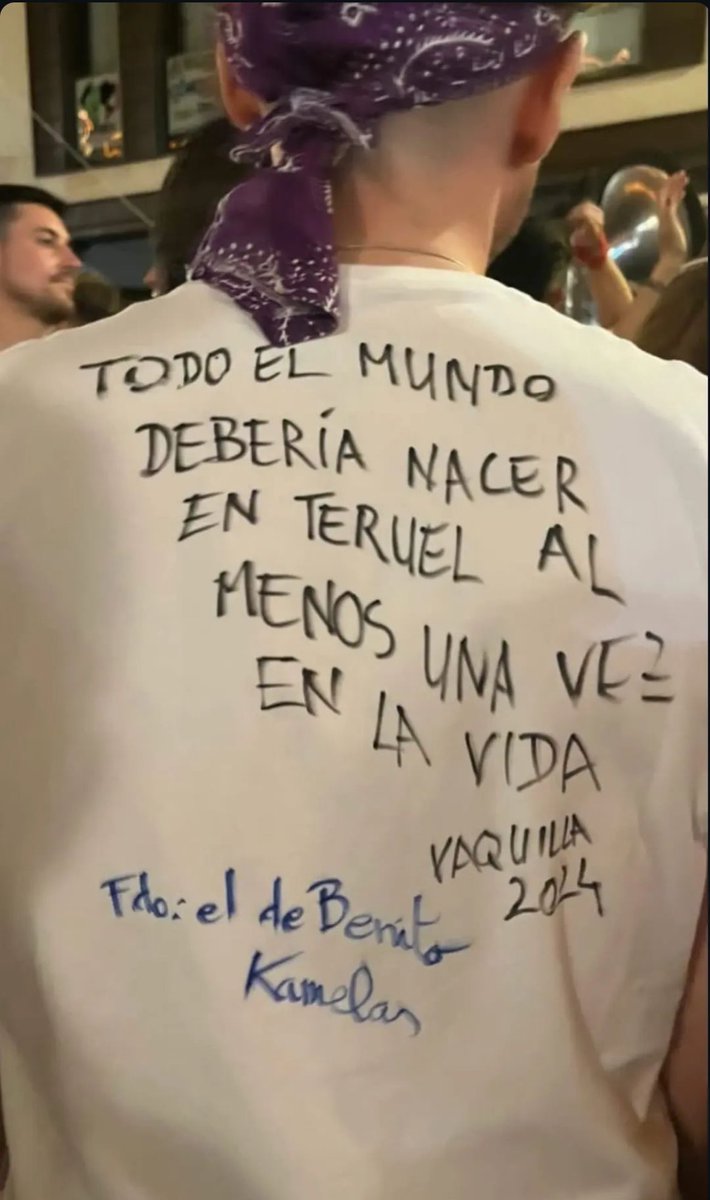 TODO EL MUNDO
DEBERÍA NACER
EN TERUEL AL
MENOS UNA VEZ
EN LA VIDA
VAQUILLA
2024
Fdo.: el de Benito
Kamelas